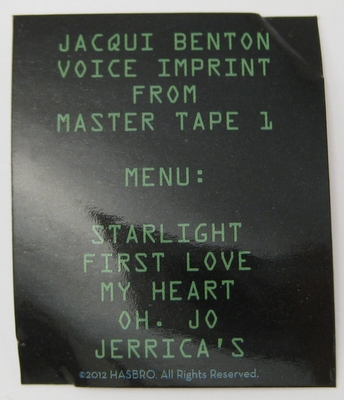 JACQUI BENTON
VOICE IMPRINT
FROM
MASTER TAPE 1
MENU:
STARLIGHT
FIRST LOVE
MY HEART
OH. JO
JERRICA'S
©2012 HASBRO. All Rights Reserved.